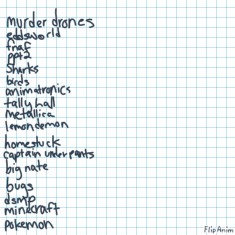 murder drones
eddsworld
fnaf
ppt2
Sharks
birds
animatronics
tally hall
metallica
lemondemon
homestuck
captain underpants
big nate
bugs
dsmp
minecraft
pokemon
FlipAnim